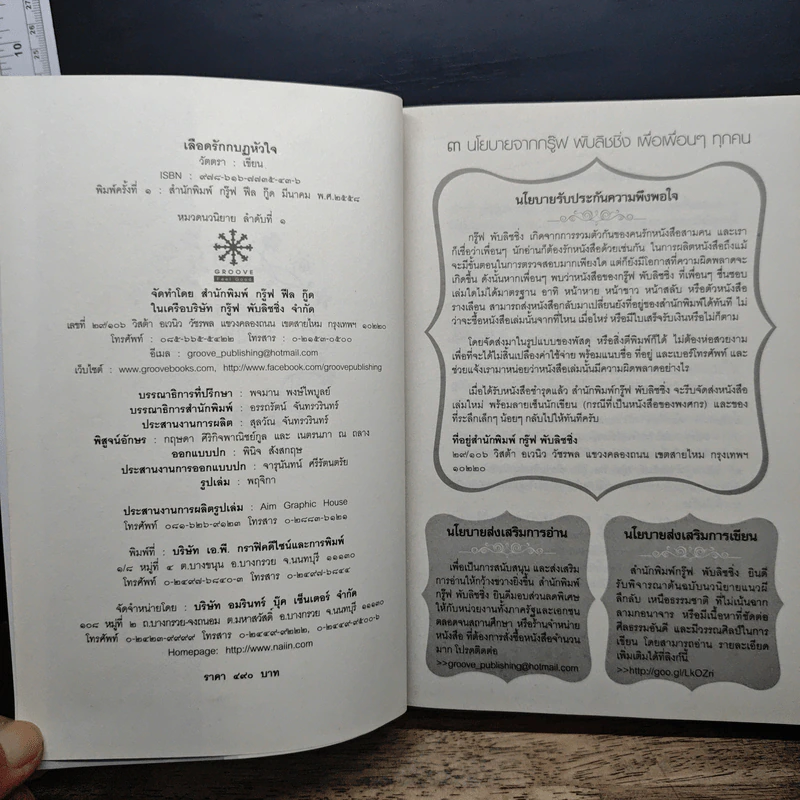 เลือดรักกบฏหัวใจ
วัตตรา : เขียน
ISBN : ๙๗๘-๖๑๖-๗๗๓๕-๔๓-๖
พิมพ์ครั้งที่ ๑ : สำนักพิมพ์ กรู๊ฟ ฟีล กู๊ด มีนาคม พ.ศ.๒๕๕๘
หมวดนวนิยาย ลำดับที่ ๑
GROOVE
Feel Good
จัดทำโดย สำนักพิมพ์ กรู๊ฟ ฟีล กู๊ด
ในเครือบริษัท กรู๊ฟ พับลิชชิ่ง จำกัด
เลขที่ ๒๙/๑๐๖ วิสต้า อเวนิว วัชรพล แขวงคลองถนน เขตสายไหม กรุงเทพฯ ๑๐๒๒๐
โทรศัพท์ : ๐๘๕-๖๖๕-๕๔๒๒ โทรสาร : ๐-๒๑๕๓-๐๕๐๐
อีเมล : groove_publishing@hotmail.com
เว็บไซต์ : www.groovebooks.com, http://www.facebook.com/groovepublishing
บรรณาธิการที่ปรึกษา : พจมาน พงษ์ไพบูลย์
บรรณาธิการสำนักพิมพ์ : อรรถรัตน์ จันทรวรินทร์
ประสานงานการผลิต : สุลวัณ จันทรวรินทร์
พิสูจน์อักษร : กฤษดา ศิริกิจพาณิชย์กูล และ เนตรนภา ณ ถลาง
ออกแบบปก : พินิจ สังสกฤษ
ประสานงานการออกแบบปก : จารุนันทน์ ศรีรัตนตรัย
รูปเล่ม : พฤจิกา
ประสานงานการผลิตรูปเล่ม : Aim Graphic House
โทรศัพท์ ๐๘๑-๖๒๖-๙๑๒๓ โทรสาร ๐-๒๘๘๓-๖๑๒๑
พิมพ์ที่ : บริษัท เอ.พี. กราฟิคดีไซน์และการพิมพ์
๑/๘ หมู่ที่ ๔ ต.บางขนุน อ.บางกรวย จ.นนทบุรี ๑๑๑๓๐
โทรศัพท์ ๐-๒๔๙๗-๖๘๔๐-๓ โทรสาร ๐-๒๔๙๗-๖๘๔๔
จัดจำหน่ายโดย : บริษัท อมรินทร์ บุ๊ค เซ็นเตอร์ จำกัด
๑๐๘ หมู่ที่ ๒ ถ.บางกรวย-จงถนอม ต.มหาสวัสดิ์ อ.บางกรวย จ.นนทบุรี ๑๑๑๓๐
โทรศัพท์ ๐-๒๔๒๓-๙๙๙๙ โทรสาร ๐-๒๔๔๙-๙๒๒๒, ๐-๒๔๔๙-๙๕๐๐-๖
Homepage: http://www.naiin.com
ราคา ๔๙๐ บาท
๓ นโยบายจากกรู๊ฟ พับลิชชิ่ง เพื่อเพื่อนๆ ทุกคน
นโยบายรับประกันความพึงพอใจ
กรู๊ฟ พับลิชชิ่ง เกิดจากการรวมตัวกันของคนรักหนังสือสามคน และเรา
ก็เชื่อว่าเพื่อนๆ นักอ่านก็ต้องรักหนังสือด้วยเช่นกัน ในการผลิตหนังสือถึงแม้
จะมีขั้นตอนในการตรวจสอบมากเพียงใด แต่ก็ยังมีโอกาสที่ความผิดพลาดจะ
เกิดขึ้น ดังนั้นหากเพื่อนๆ พบว่าหนังสือของกรู๊ฟ พับลิชชิ่ง ที่เพื่อนๆ ชื่นชอบ
เล่มใดไม่ได้มาตรฐาน อาทิ หน้าหาย หน้าขาว หน้าสลับ หรือตัวหนังสือ
รางเลือน สามารถส่งหนังสือกลับมาเปลี่ยนยังที่อยู่ของสำนักพิมพ์ได้ทันที ไม่
ว่าจะซื้อหนังสือเล่มนั้นจากที่ไหน เมื่อไหร่ หรือมีใบเสร็จรับเงินหรือไม่ก็ตาม
โดยจัดส่งมาในรูปแบบของพัสดุ หรือสิ่งตีพิมพ์ก็ได้ ไม่ต้องห่อสวยงาม
เพื่อที่จะได้ไม่สิ้นเปลืองค่าใช้จ่าย พร้อมแนบชื่อ ที่อยู่ และเบอร์โทรศัพท์ และ
ช่วยแจ้งเรามาหน่อยว่าหนังสือเล่มนั้นมีความผิดพลาดอย่างไร
เมื่อได้รับหนังสือชำรุดแล้ว สำนักพิมพ์กรู๊ฟ พับลิชชิ่ง จะรีบจัดส่งหนังสือ
เล่มใหม่ พร้อมลายเซ็นนักเขียน (กรณีที่เป็นหนังสือของพงศกร) และของ
ที่ระลึกเล็กๆ น้อยๆ กลับไปให้ทันทีครับ
ที่อยู่สำนักพิมพ์ กรู๊ฟ พับลิชชิ่ง
๒๙/๑๐๖ วิสต้า อเวนิว วัชรพล แขวงคลองถนน เขตสายไหม กรุงเทพฯ
๑๐๒๒๐
นโยบายส่งเสริมการอ่าน
เพื่อเป็นการสนับสนุน และส่งเสริม
การอ่านให้กว้างขวางยิ่งขึ้น สำนักพิมพ์
กรู๊ฟ พับลิชชิ่ง ยินดีมอบส่วนลดพิเศษ
ให้กับหน่วยงานทั้งภาครัฐและเอกชน
ตลอดจนสถานศึกษา หรือร้านจำหน่าย
หนังสือ ที่ต้องการสั่งซื้อหนังสือจำนวน
มาก โปรดติดต่อ
>>groove_publishing@hotmail.com
นโยบายส่งเสริมการเขียน
สำนักพิมพ์กรู๊ฟ พับลิชชิ่ง ยินดี
รับพิจารณาต้นฉบับนวนิยายแนวผี
ลึกลับ เหนือธรรมชาติ ที่ไม่เน้นฉาก
ลามกอนาจาร หรือมีเนื้อหาที่ขัดต่อ
ศีลธรรมอันดี และมีวรรณศิลป์ในการ
เขียน โดยสามารถอ่าน รายละเอียด
เพิ่มเติมได้ที่ลิงก์นี้
>>http://goo.gl/LkOZri